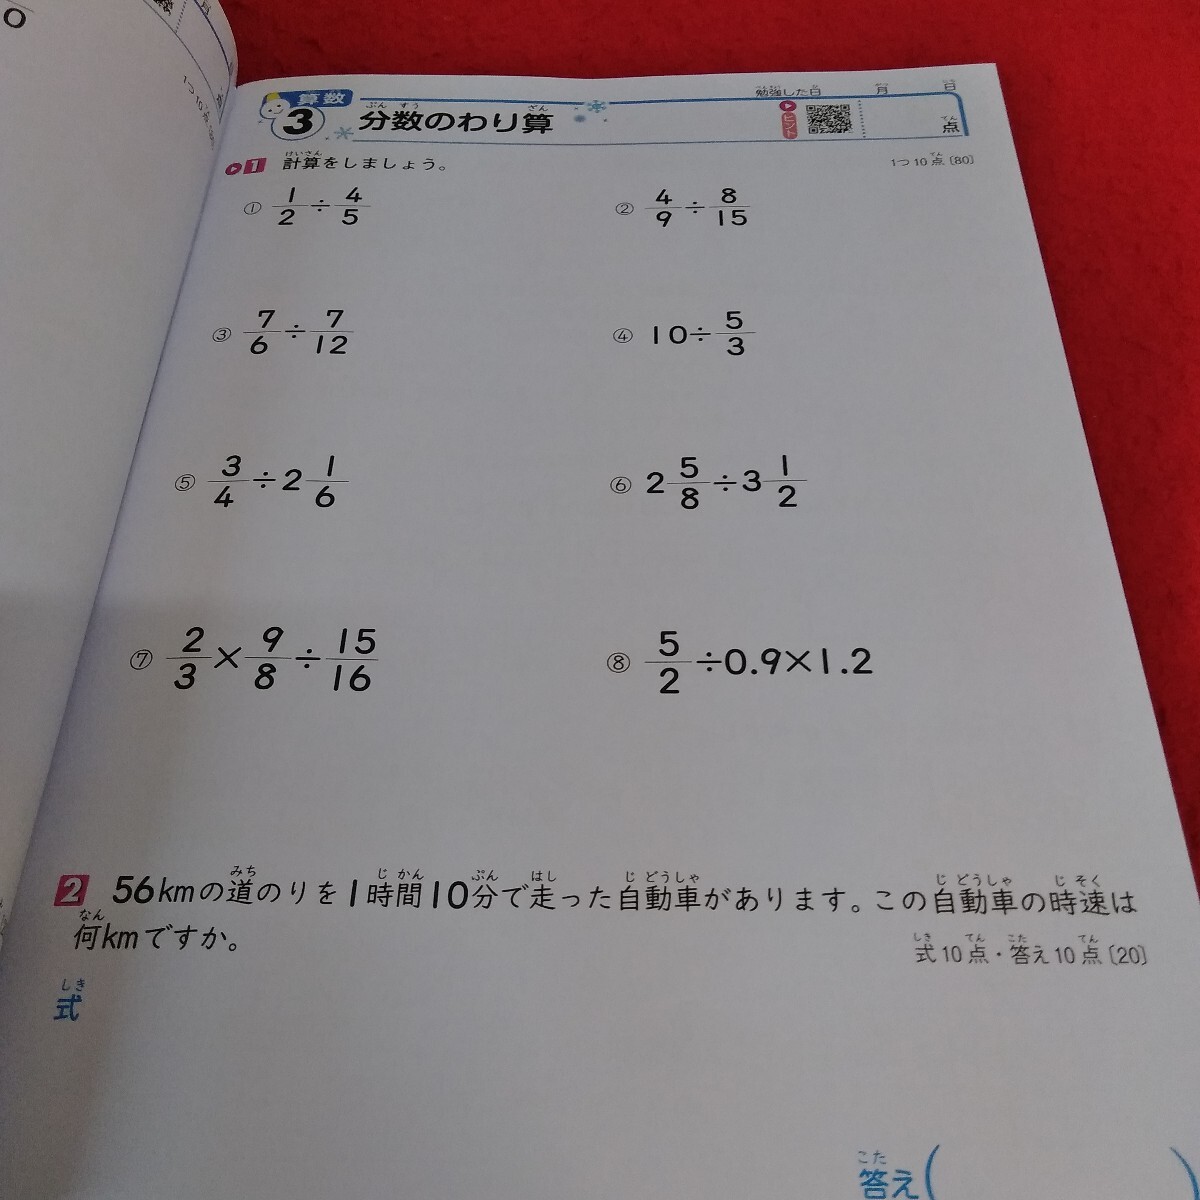 算数
3 分数のわり算
勉強した日 月 日
ヒント
点
1 計算をしましょう。
1つ10点〔80〕
① 1/2 ÷ 4/5
② 4/9 ÷ 8/15
③ 7/6 ÷ 7/12
④ 10 ÷ 5/3
⑤ 3/4 ÷ 2 1/6
⑥ 2 5/8 ÷ 3 1/2
⑦ 2/3 × 9/8 ÷ 15/16
⑧ 5/2 ÷ 0.9 × 1.2
2 56kmの道のりを1時間10分で走った自動車があります。この自動車の時速は
何kmですか。
式10点・答え10点〔20〕
式
答え(